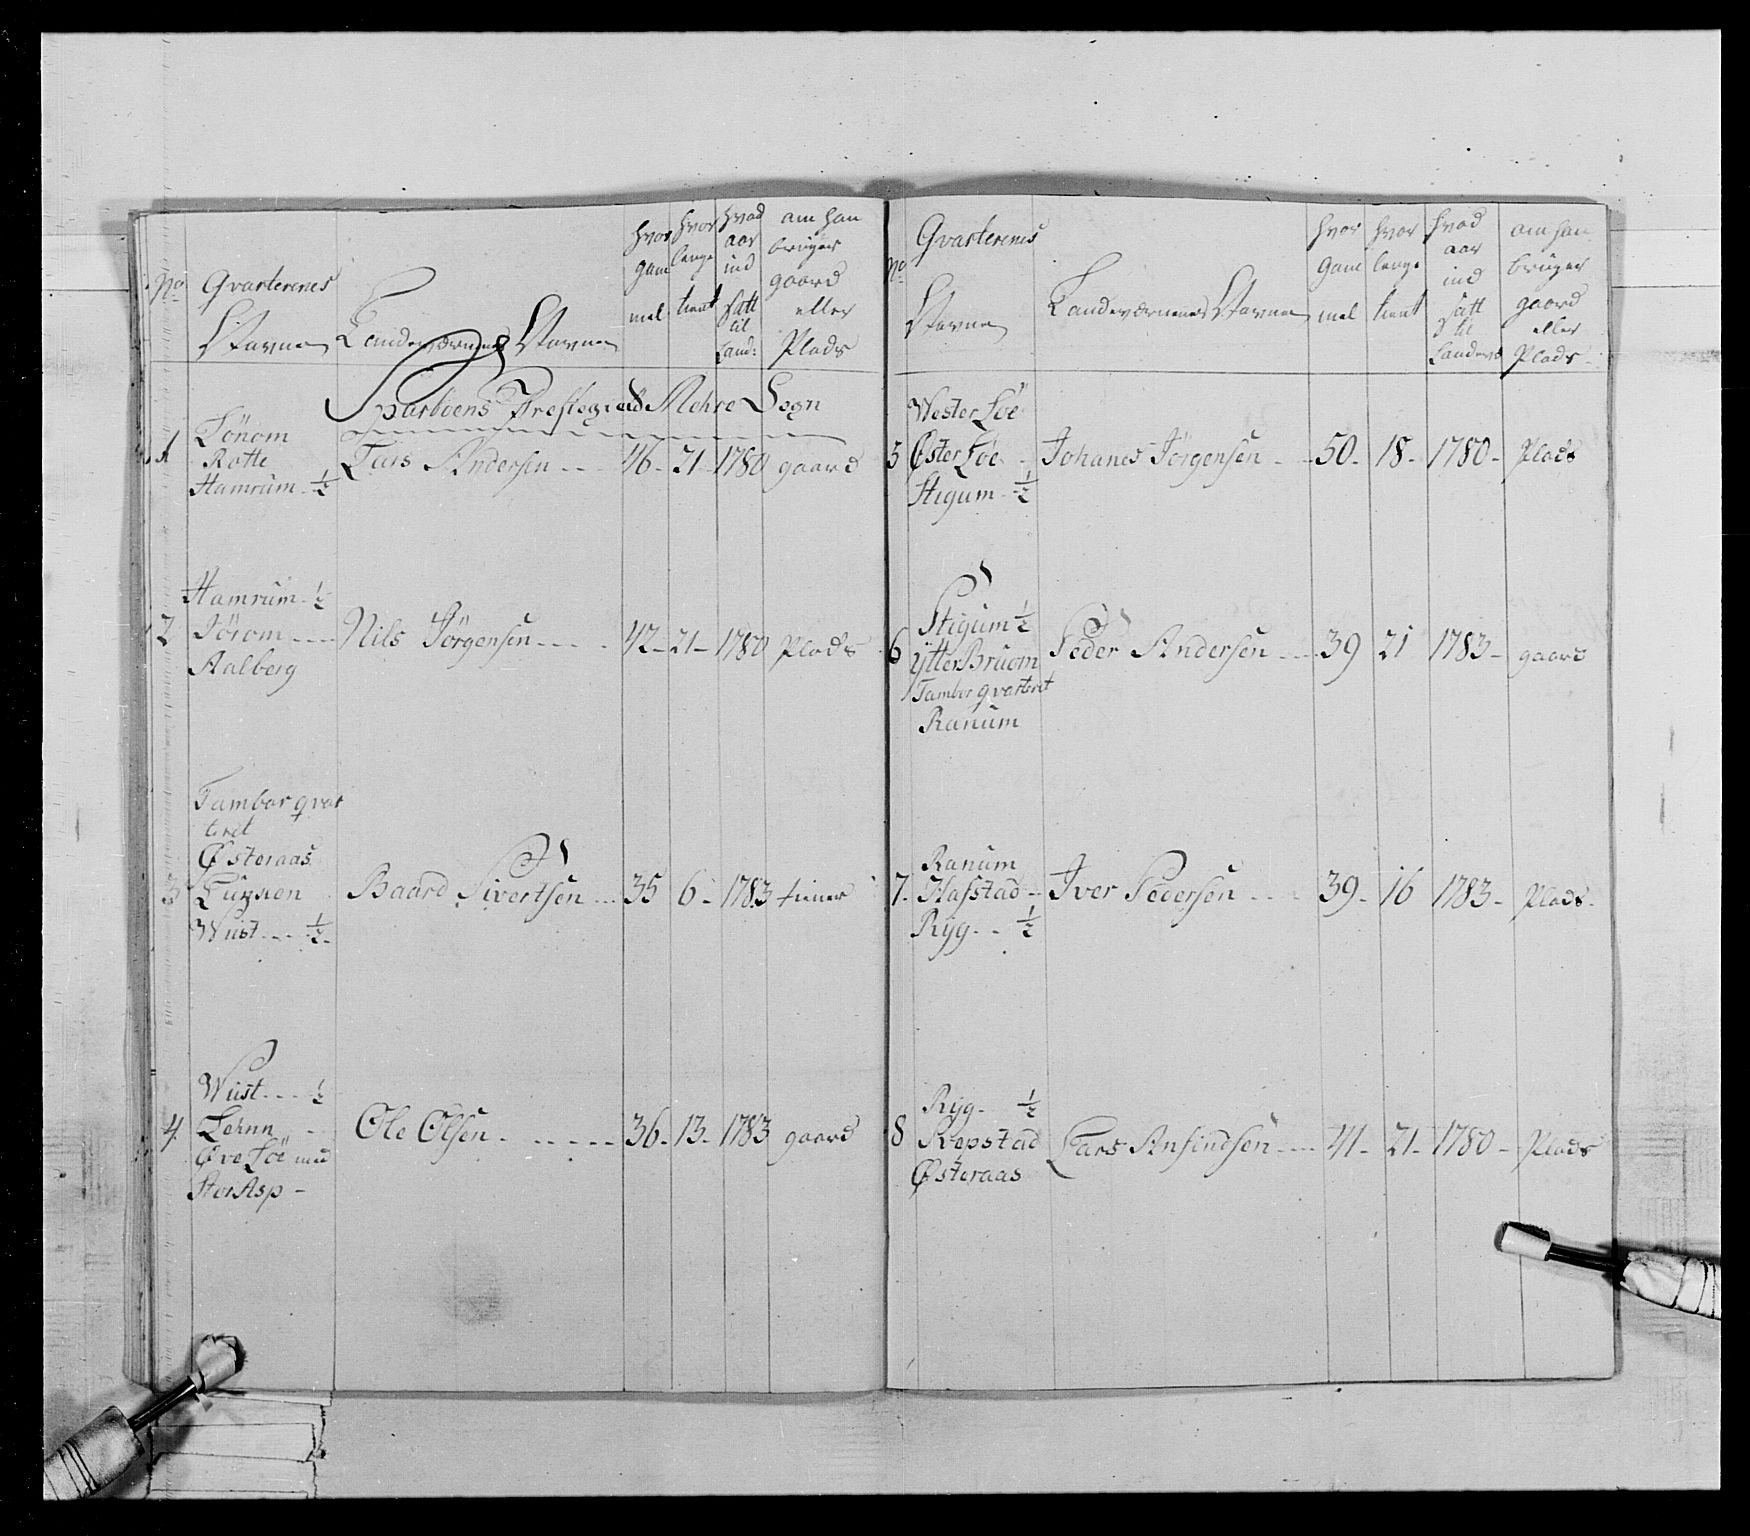 No
Qvarterenes
Navne
Landeværnenes Navne
hvor
gam
mel
hvor
lenge
tient
hvad
aar
ind
satt
til
Land:
om han
bruger
gaard
eller
Plads
Sparboens Prestegield Mehre Sogn
Lönom
1 Rotte Lars Andersen 46 - 21 - 1780 gaard
Hamrum - ½
Hamrum - ½
2 Nils Jörgensen 42 - 21 - 1780 Plads
Aalberg
Tambor qvar
teret
Østeraas
3 Baard Sivertsen 35 6 - 1783 tiener
Wüst ½
Wüst ½
4. Ole Olsen 36 - 13 - 1783 gaard
Øvre Löe med
Stor Asp -
No
Qvarterenes
Navne
Landeværnenes Navne
hvor
gam
mel
hvor
lenge
tient
hvad
aar
ind
satt
til
Landev
om han
bruger
gaard
eller
Plads
Wester Löe
5 Øster Löe - Johanes Jörgensen 50 - 18 - 1780 - Plads
Stigum - ½
Stigum ½
6 Ytter Bruom Peder Andersen 39 21 1783 - gaard
Tambor qvarteret
Ranum
Ranum
7. Hafstad - Iver Pedersen 39 - 16 1783 - Plads -
Ryg - - ½
Ryg - ½
8 Repstad Lars Ansindsen 41 - 21 - 1780 - Plads
Østeraas